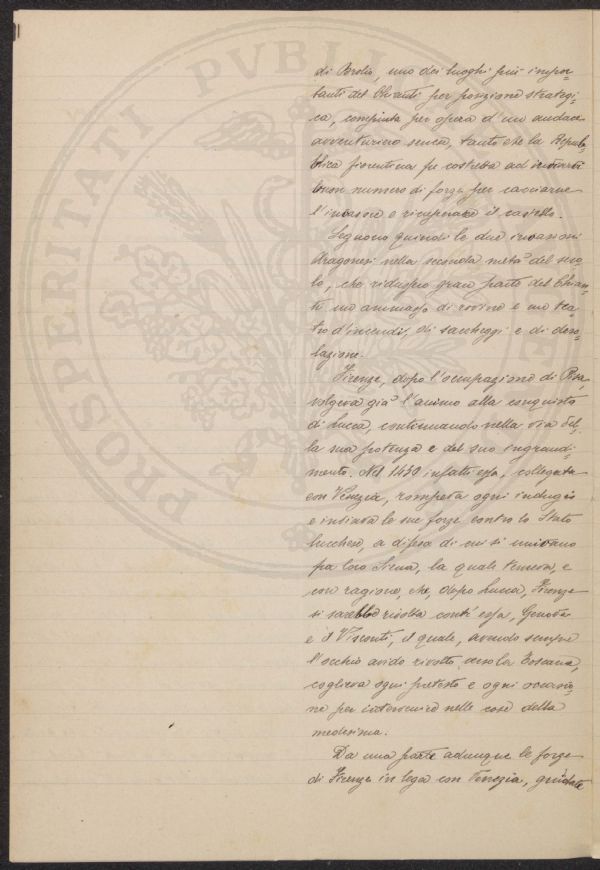 di Brolio, uno dei luoghi più impor-
tanti del Chianti per posizione strategi-
ca, compiuta per opera d'un audace
avventuriero senese, tanto che la Repub-
blica fiorentina fu costretta ad inviarvi
buon numero di forze per cacciarne
l'invasore e ricuperare il castello.
Seguono quindi le due invasioni
Aragonesi nella seconda metà del seco-
lo, che ridussero gran parte del Chian-
ti un ammasso di rovine e un tea-
tro d'incendii, di saccheggi e di deso-
lazione.
Firenze, dopo l'occupazione di Pisa,
volgeva già l'animo alla conquista
di Lucca, continuando nella via del-
la sua potenza e del suo ingrandi-
mento. Nel 1430 infatti essa, collegata
con Venezia, rompeva ogni indugio
e inviava le sue forze contro lo Stato
lucchese, a difesa di cui si univano
fra loro Siena, la quale temeva, e
con ragione, che, dopo Lucca, Firenze
si sarebbe rivolta contr'essa, Genova
e il Visconti, il quale, avendo sempre
l'occhio avido rivolto verso la Toscana,
coglieva ogni pretesto e ogni occasio-
ne per intervenire nelle cose della
medesima.
Da una parte adunque le forze
di Firenze in lega con Venezia, guidate
PROSPERITATI PVBLIC